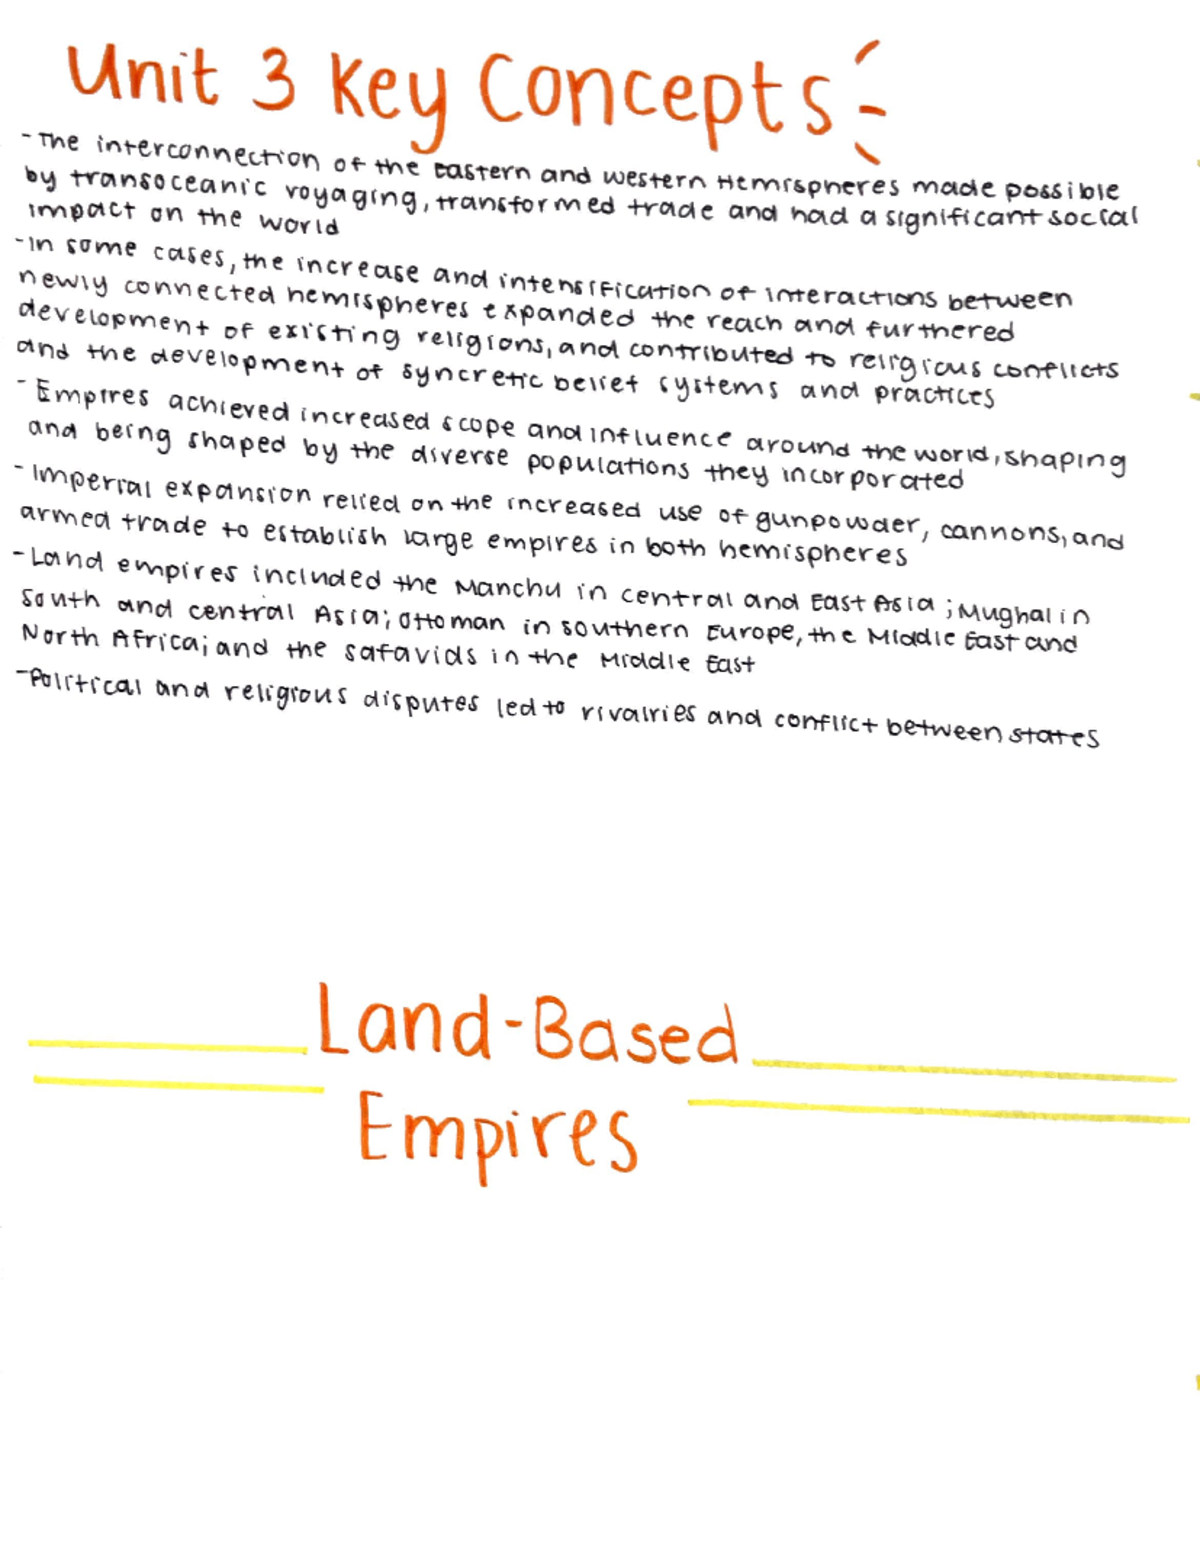 Unit 3 Key Concepts
- The interconnection of the Eastern and Western Hemispheres made possible
by transoceanic voyaging, transformed trade and had a significant social
impact on the world
- In some cases, the increase and intensification of interactions between
newly connected hemispheres expanded the reach and furthered
development of existing religions, and contributed to religious conflicts
and the development of syncretic belief systems and practices
- Empires achieved increased scope and influence around the world, shaping
and being shaped by the diverse populations they incorporated
- Imperial expansion relied on the increased use of gunpowder, cannons, and
armed trade to establish large empires in both hemispheres
- Land empires included the Manchu in central and East Asia; Mughal in
South and central Asia; Ottoman in southern Europe, the Middle East and
North Africa; and the Safavids in the Middle East
- Political and religious disputes led to rivalries and conflict between states
Land-Based
Empires